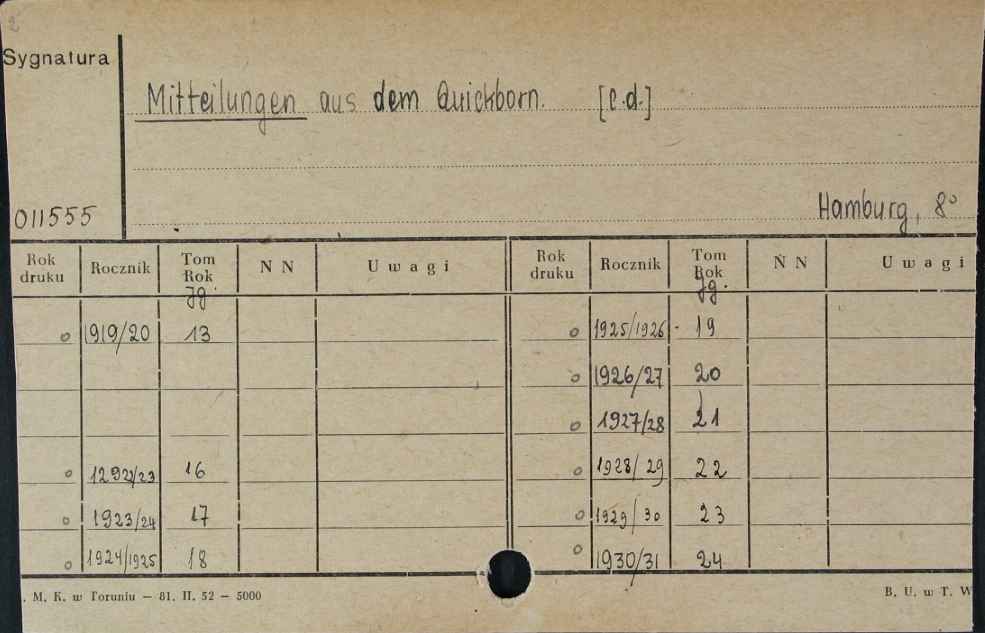 Sygnatura
Mitteilungen aus dem Quickborn. [c.d.]
011555
Hamburg, 8°
Rok druku Rocznik Tom Rok Jg. N N Uwagi Rok druku Rocznik Tom Rok Jg. N N Uwagi
o 1919/20 13 o 1925/1926 - 19
o 1926/27 20
o 1927/28 21
o 1292/23 16 o 1928/29 22
o 1923/24 17 o 1929/30 23
o 1924/1925 18 o 1930/31 24
. M. K. w Toruniu — 81. II. 52 — 5000
B. U. w T. W